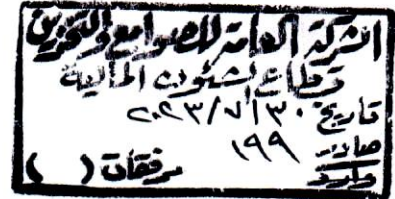 الشركة العامة للصوامع والتخزين
قطاع الشئون المالية
تاريخ ٢٠٢٣/٧/٣٠
صادر ١٩٩
وارد مرفقات ( )